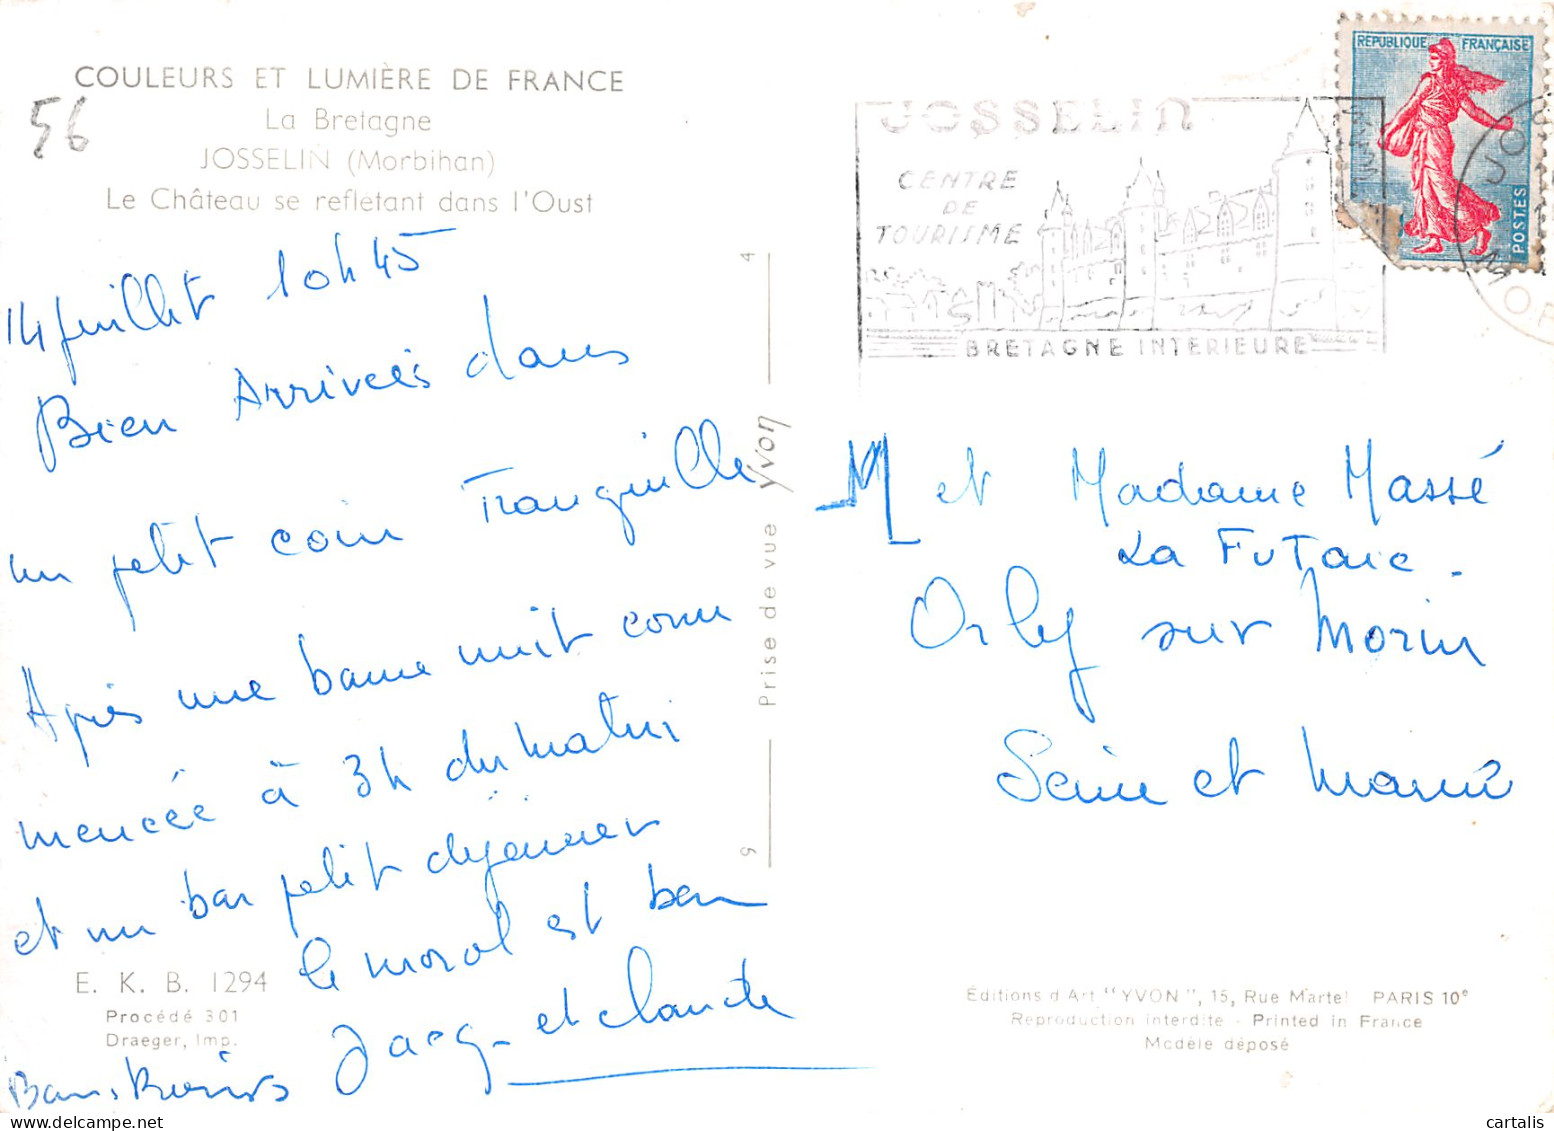 COULEURS ET LUMIÈRE DE FRANCE
La Bretagne
JOSSELIN (Morbihan)
Le Château se reflétant dans l'Oust
56
14 juillet 10h45
Bien Arrivées dans
un petit coin Tranquille
Après une bonne nuit com
mencée à 3h du matin
et un bon petit déjeuner
le moral est bon
Jacq. et claude
Bons
E. K. B. 1294
Procédé 301
Draeger, Imp.
4
Prise de vue Yvon
9
JOSSELIN
CENTRE
DE
TOURISME
BRETAGNE INTERIEURE
RÉPUBLIQUE FRANÇAISE
POSTES
M et Madame Massé
La Futaie.
Orly sur Morin
Seine et Marne
Éditions d'Art "YVON", 15, Rue Martel PARIS 10e
Reproduction interdite - Printed in France
Modèle déposé
cartalis